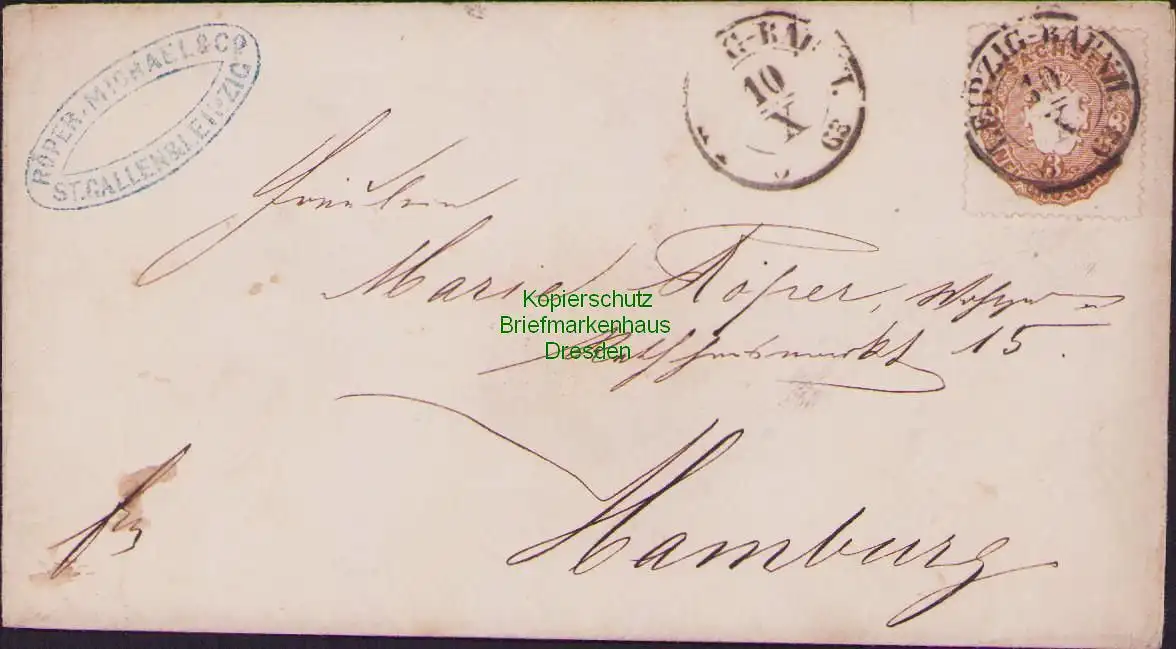 RÖPER, MICHAEL & Co
ST. GALLEN & LEIPZIG
LEIPZIG-BAHNH.
10
X
63
SACHSEN
3
Fräulein
Marie Röper,
15.
Hamburg
Kopierschutz
Briefmarkenhaus
Dresden